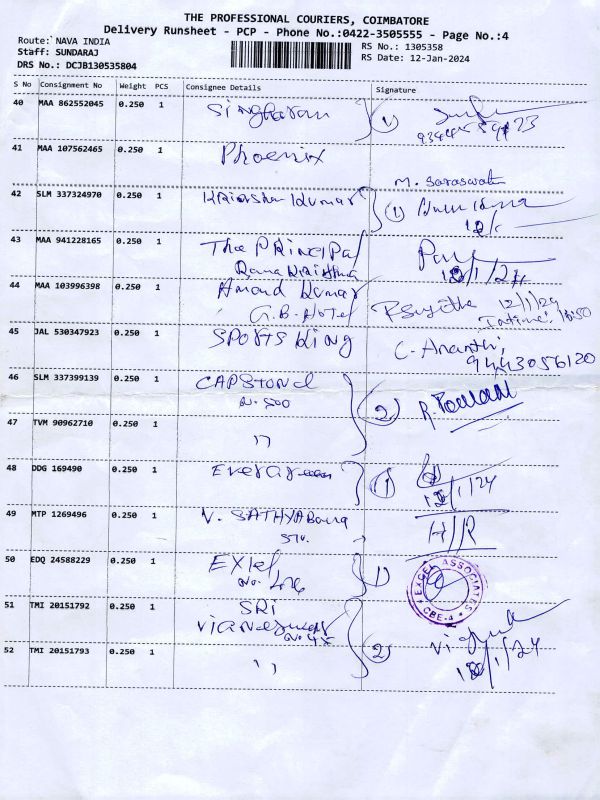 THE PROFESSIONAL COURIERS, COIMBATORE
Delivery Runsheet - PCP - Phone No.:0422-3505555 - Page No.:4
Route: NAVA INDIA
Staff: SUNDARAJ
DRS No.: DCJB130535804
RS No.: 1305358
RS Date: 12-Jan-2024
S No Consignment No Weight PCS Consignee Details Signature
40 MAA 862552045 0.250 1 Singharam 1)
41 MAA 107562465 0.250 1 Phoenix
M. Saraswathi
42 SLM 337324970 0.250 1 Kumar 1)
43 MAA 941228165 0.250 1 The PRINCIPAL
Rama Krishna 12/1/24
44 MAA 103996398 0.250 1 Anand Kumar
G.B. Hotel 12/1/24
45 JAL 530347923 0.250 1 SPORTS King C. Ananthi,
9443056120
46 SLM 337399139 0.250 1 CAPSTONE 2)
No. 500
47 TVM 90962710 0.250 1 ''
48 DDG 169490 0.250 1 Evergreen 1)
12/1/24
49 MTP 1269496 0.250 1 V. SATHYA H/R
50 EDQ 24588229 0.250 1 EXlel 1) EXCEL ASSOCIATES
CBE-4
51 TMI 20151792 0.250 1 SRI
No 45
52 TMI 20151793 0.250 1 '' 2) 12/1/24